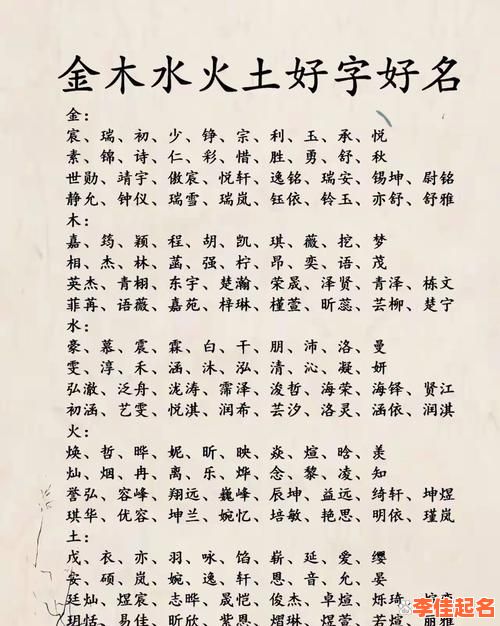 金木水火土好字好名
金：
宸、瑞、初、少、铮、宗、利、玉、承、悦
素、锦、诗、仁、彩、惜、胜、勇、舒、秋
世勋、靖宇、傲宸、悦轩、逸铭、瑞安、锡坤、尉铭
静允、钟仪、瑞雪、瑞岚、钰依、铃玉、亦舒、舒雅
木：
嘉、筠、颖、程、胡、凯、琪、薇、挖、梦
相、杰、林、菡、强、柠、昂、奕、语、茂
英杰、青栩、东宇、楚瀚、荣晟、泽贤、青泽、栋文
菲苒、语薇、嘉苑、梓琳、槿萱、昕蕊、芸柳、楚宁
水：
豪、慕、震、霖、白、干、朋、沛、洛、曼
雯、淳、禾、涵、沐、泓、清、沁、凝、妍
弘澈、泛舟、泷涛、霈泽、浚哲、海荣、海铎、贤江
初涵、艺雯、悦淇、润希、芸汐、洛灵、涵依、润淇
火：
焕、哲、晔、妮、昕、映、焱、煊、晗、羡
灿、烟、冉、离、乐、烨、念、黎、凌、知
誉弘、容峰、翔远、巍峰、辰坤、益远、绮轩、坤煜
琪华、优容、坤兰、婉忆、培敏、艳思、明依、瑾岚
土：
戊、衣、亦、羽、咏、馅、崭、延、爱、缨
安、硕、岚、婉、逸、轩、恩、音、允、晏
廷灿、煜宸、志晔、晟恺、俊杰、卓煊、烁琦、
玥恬、易佳、昕欣、紫恩、
李佳起名